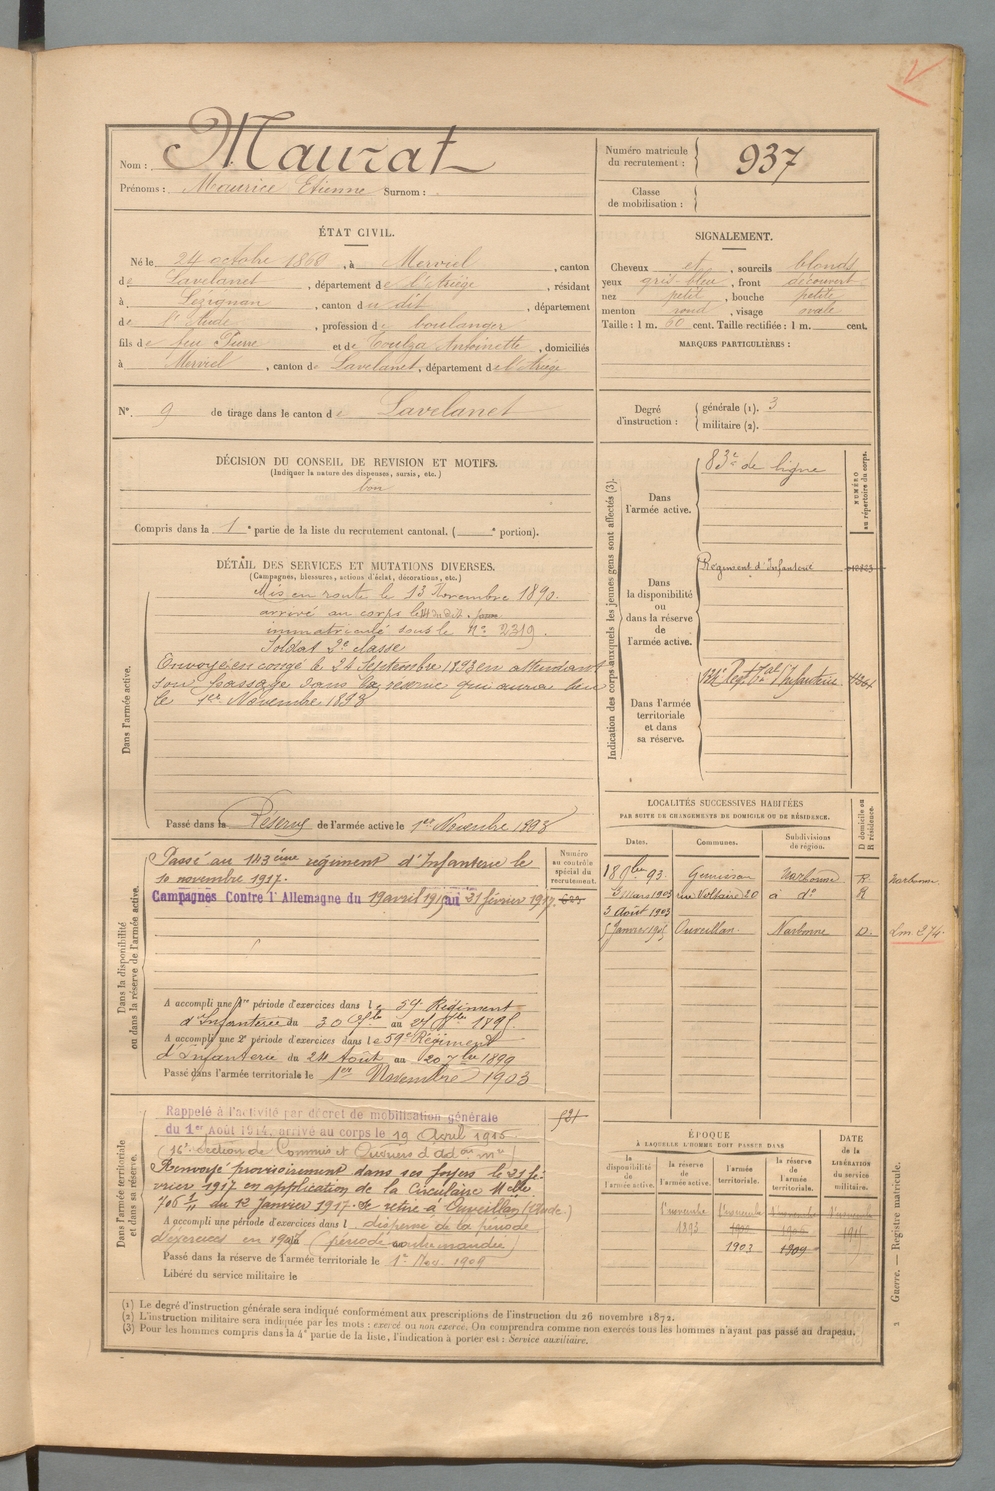 Nom : Maurat
Prénoms : Maurice Etienne Surnom : .
Numéro matricule du recrutement : 937
Classe de mobilisation :
ÉTAT CIVIL.
Né le 24 octobre 1868, à Merviel, canton
de Lavelanet, département de l'Ariège, résidant
à Lézignan, canton du dit, département
de l'Aude, profession de boulanger
fils de feu Pierre et de Toulza Antoinette, domiciliés
à Merviel, canton de Lavelanet, département de l'Ariège
SIGNALEMENT.
Cheveux et, sourcils blonds
yeux gris-bleu, front découvert
nez petit, bouche petite
menton rond, visage ovale
Taille : 1 m. 60 cent. Taille rectifiée : 1 m. cent.
MARQUES PARTICULIÈRES :
N°. 9 de tirage dans le canton de Lavelanet
Degré d'instruction : générale (1). 3
militaire (2).
DÉCISION DU CONSEIL DE REVISION ET MOTIFS.
(Indiquer la nature des dispenses, sursis, etc.)
bon
Compris dans la 1e partie de la liste du recrutement cantonal. ( e portion).
DÉTAIL DES SERVICES ET MUTATIONS DIVERSES.
(Campagnes, blessures, actions d'éclat, décorations, etc.)
Dans l'armée active.
Mis en route le 13 Novembre 1890.
arrivé au corps le 14 du dit.
immatriculé sous le N° 2319.
Soldat 2e classe
Envoyé en congé le 24 Septembre 1893 en attendant
son passage dans la réserve qui aura lieu
le 1er Novembre 1893
Passé dans la Réserve de l'armée active le 1er Novembre 1893
Indication des corps auxquels les jeunes gens sont affectés (3).
NUMÉRO au répertoire du corps.
Dans l'armée active.
83e de ligne
Dans la disponibilité ou dans la réserve de l'armée active.
Régiment d'Infanterie
Dans l'armée territoriale et dans sa réserve.
LOCALITÉS SUCCESSIVES HABITÉES
PAR SUITE DE CHANGEMENTS DE DOMICILE OU DE RÉSIDENCE.
Dates. Communes. Subdivisions de région. D domicile ou R résidence.
18 8bre 93. Narbonne R. Narbonne
3 Mars 1903 rue Voltaire 20 à do R
3 août 1903
5 Janvier 1905 Ouveillan. Narbonne D.
Dans la disponibilité ou dans la réserve de l'armée active.
Numéro au contrôle spécial du recrutement.
Passé au 143ème régiment d'Infanterie le
10 novembre 1917.
Campagnes Contre l'Allemagne du 19 avril 1915 au 31 février 1917.
A accompli une 1re période d'exercices dans le 59e Régiment
d'Infanterie du 30 au 1895.
A accompli une 2e période d'exercices dans le 59e Régiment
d'Infanterie du 24 Août au 20 7bre 1899
Passé dans l'armée territoriale le 1er Novembre 1903
Dans l'armée territoriale et dans sa réserve.
521
Rappelé à l'activité par décret de mobilisation générale
du 1er Août 1914, arrivé au corps le 19 Avril 1915
16e Section de Commis et Ouvriers d'adon mre
Renvoyé provisoirement dans ses foyers le 31 fé-
vrier 1917 en application de la Circulaire Mlle
du 12 Janvier 1917. Se retire à Ouveillan (Aude.)
A accompli une période d'exercices dans l dispensé de la période
d'exercices en 1907 (période contremandée)
Passé dans la réserve de l'armée territoriale le 1er Nov. 1909
Libéré du service militaire le
ÉPOQUE
À LAQUELLE L'HOMME DOIT PASSER DANS
la disponibilité de l'armée active. la réserve de l'armée active. l'armée territoriale. la réserve de l'armée territoriale.
DATE de la LIBÉRATION du service militaire.
1er novembre 1er novembre 1er novembre 1er novembre
1893
1903 1909
(1) Le degré d'instruction générale sera indiqué conformément aux prescriptions de l'instruction du 26 novembre 1872.
(2) L'instruction militaire sera indiquée par les mots : exercé ou non exercé. On comprendra comme non exercés tous les hommes n'ayant pas passé au drapeau.
(3) Pour les hommes compris dans la 4e partie de la liste, l'indication à porter est : Service auxiliaire.
Guerre. — Registre matricule.